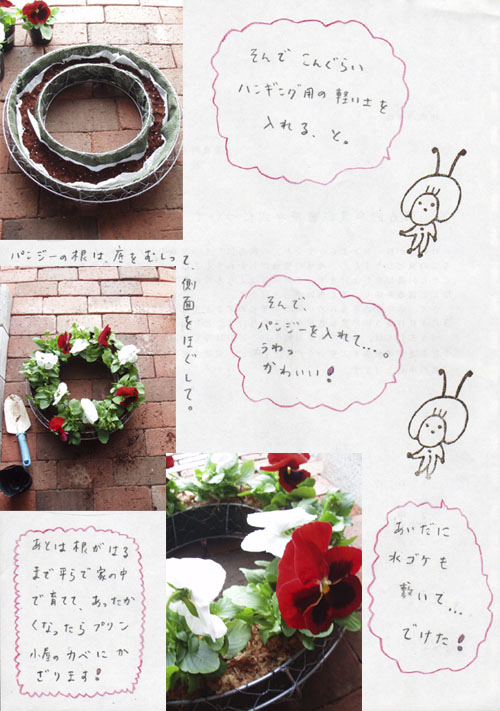 そんで こんぐらい
ハンギング用の軽い土を
入れる、と。
パンジーの根は、底をむしって、側面をほぐして。
そんで、
パンジーを入れて…。
うわっ
かわいい!
あいだに
水ゴケも
敷いて…
でけた!
あとは根がはる
まで平らで家の中
で育てて、あったか
くなったらプリン
小屋のカベにか
ざります!